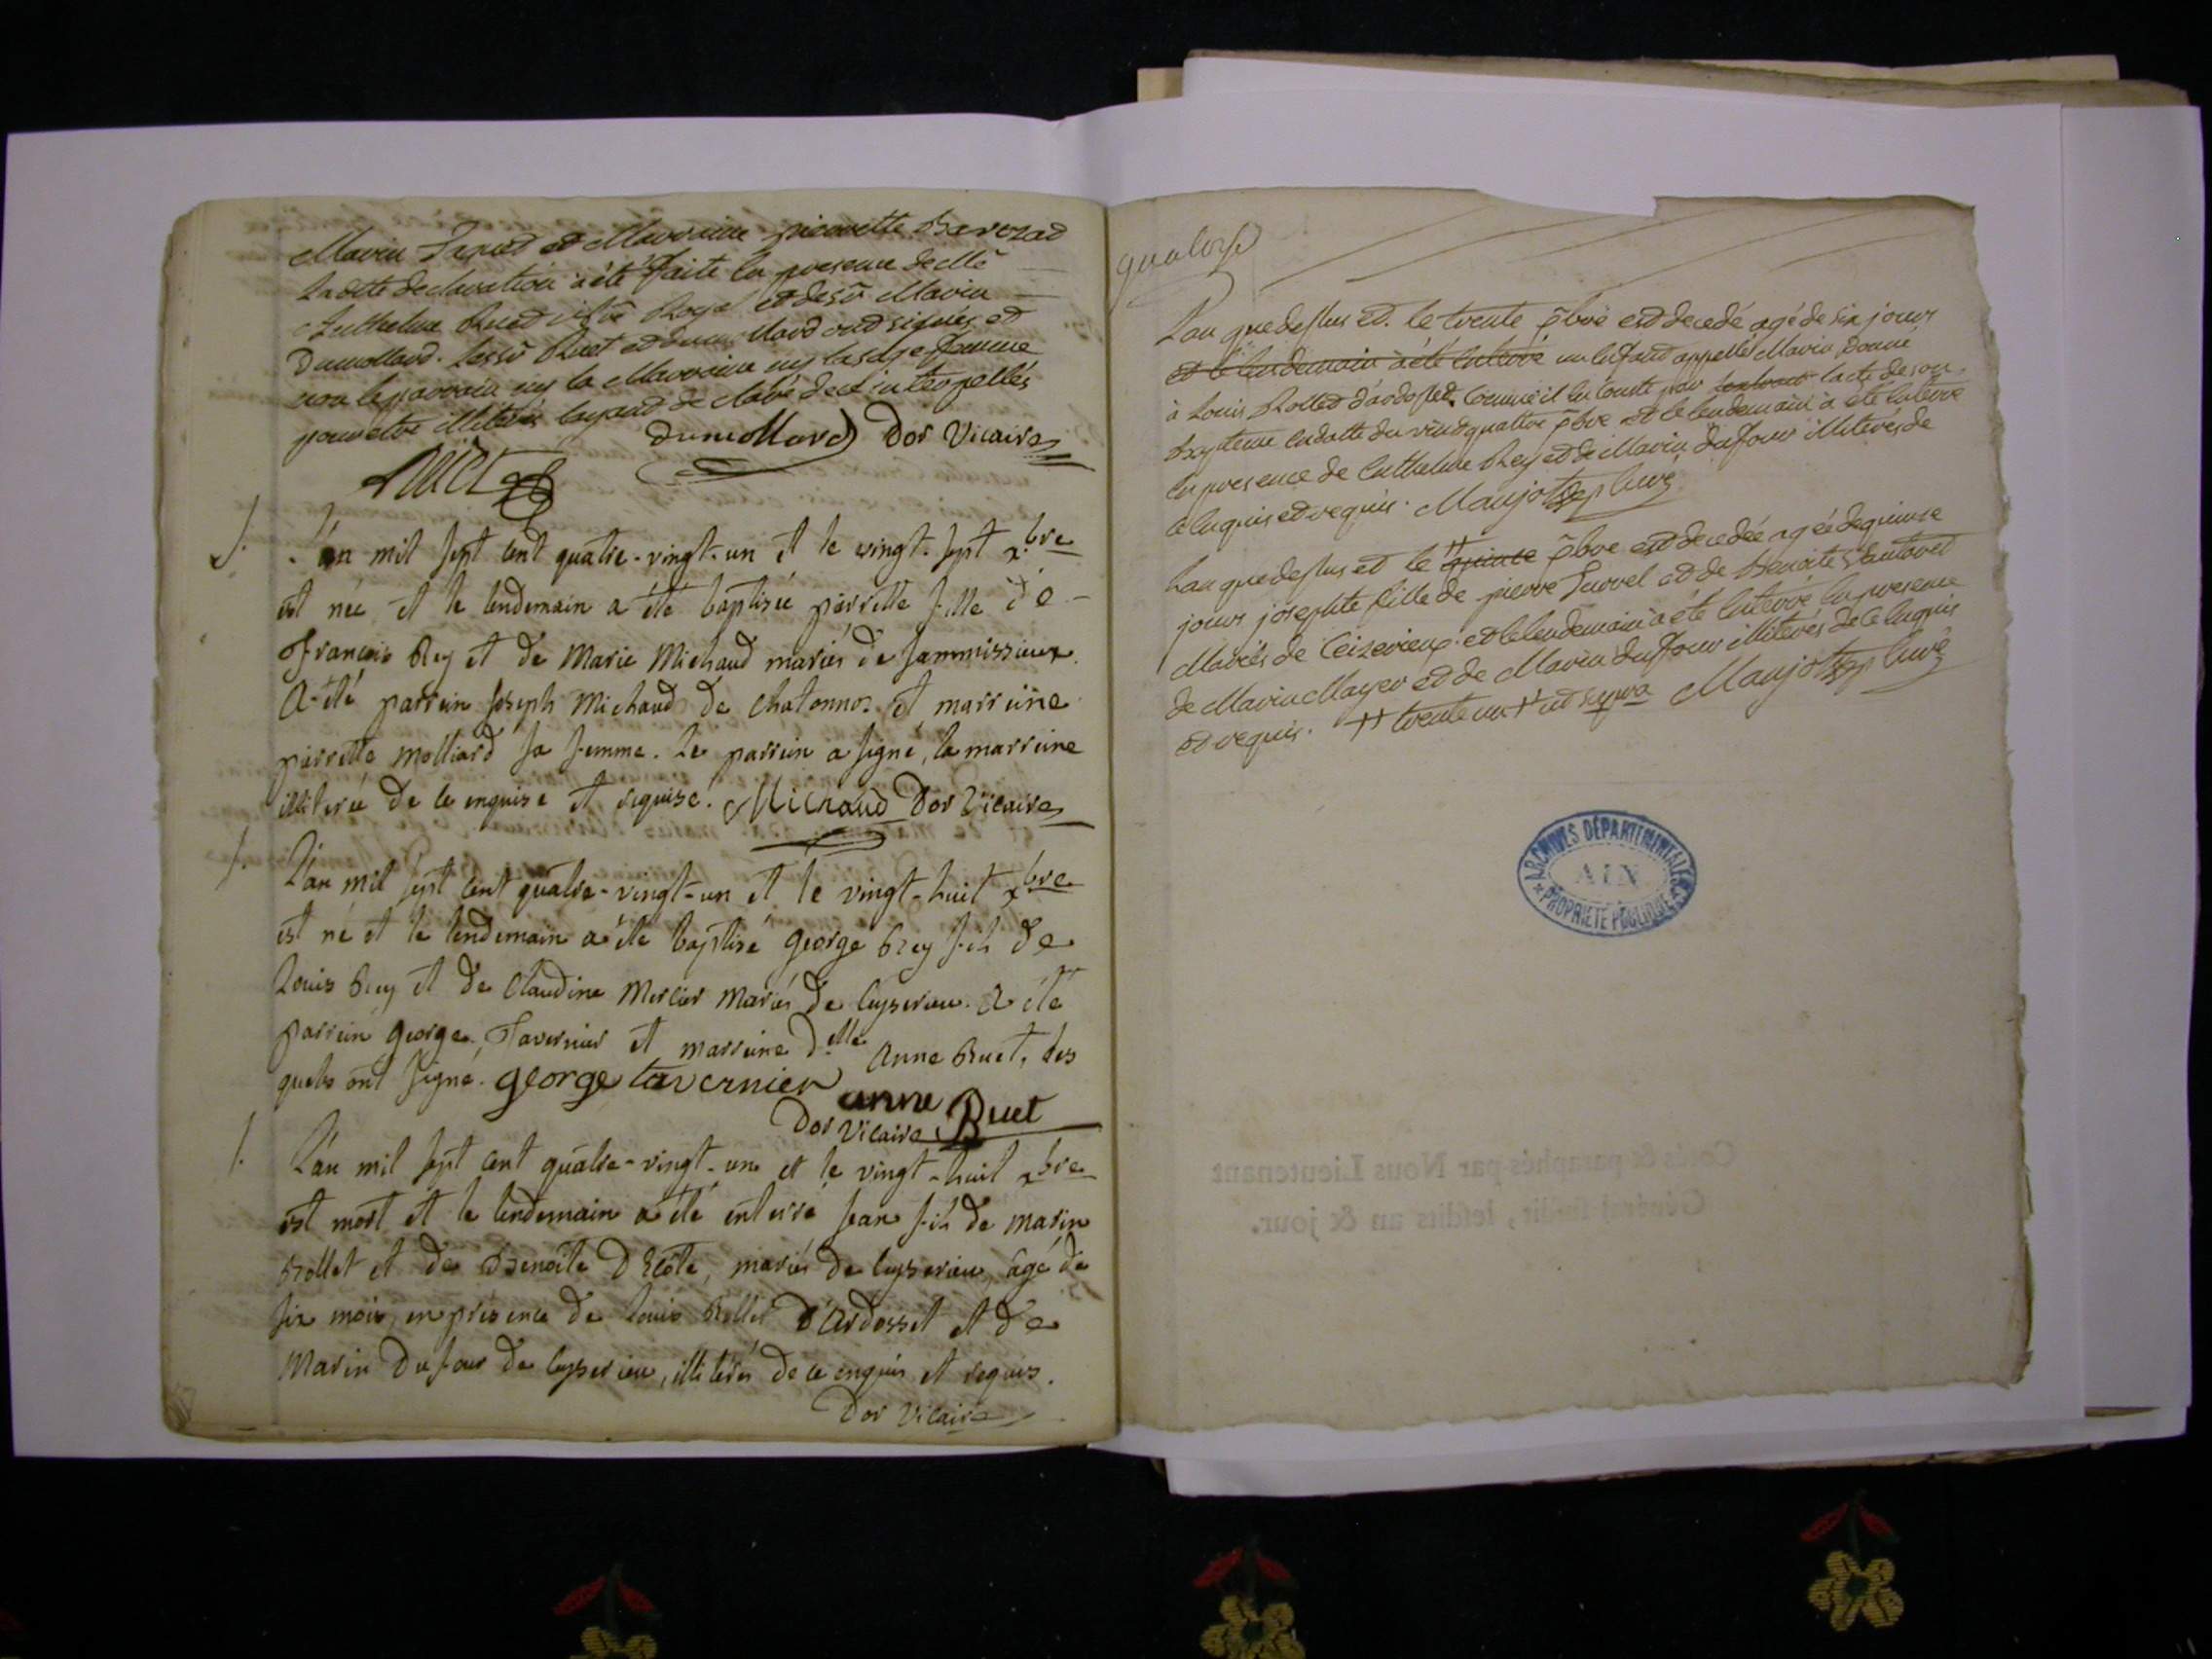 Marin Japud et Marraine pierrette Barozad
Ladette declaration a été faite en presence de Me
Anthelme Ruet nore Royal et de sr Marin
Dumollard. Lessr Ruet et dumollard ont signés et
non le parrain ny la Marraine ny la sage femme
pour etre illiterés layant declaré de ce interpellés
Dumollard Dor Vicaire
Ruet
L'an mil sept cent quatre-vingt-un et le vingt-sept xbre
est née et le lendemain a été baptisée pierrette fille de
François Rey et de Marie Michaud mariés de Jammissieux.
A été parrein Joseph Michaud de Chatonnoz et marreine
pierrette Molliard sa femme. Le parrein a signé, la marreine
illiterée de ce enquise et requise. Michaud Dor Vicaire
L'an mil sept cent quatre-vingt-un et le vingt-huit xbre
est né et le lendemain a été baptisé George Rey fils de
Louis Rey et de Claudine Mercier mariés de Ceyserieu. A été
parrein George Tavernier et marreine Delle Anne Ruet, les
quels ont signé. george tavernier
anne Ruet
Dor Vicaire
L'an mil sept cent quatre-vingt-un et le vingt-huit xbre
est mort et le lendemain a été enterré Jean fils de Marin
Rollet et de Benoite D'Ecôte, mariés de Ceyserieu, âgé de
six mois, en présence de Louis Rollet d'Ardosset et de
Marin Dufour de Ceyserieu, illiterés de ce enquis et requis.
Dor Vicaire
quatorze
Lan que dessus et le trente xbre est decedé agé de six jours
et le lendemain a été enterré un enfant appellé Marin donné
à Louis Rolled d'ardosset. Comme il en conste par lacte de son
bapteme en datte du vintquattre xbre et le lendemain a été enterré
en presence de Enthelme Rey et de Marin dufour illiterés de
ce enquis et requis. Maujot curé
Lan que dessus et le quinze xbre est decedée agée de quinze
jours josephte fille de pierre Juvvel et de Benoite
Mariés de Ceizerieux. et le lendemain a été enterré en presence
de Marin Mayer et de Marin dufour illiterés de ce enquis
et requis. ++ trente un ++ ut supra Maujot curé
ARCHIVES DÉPARTEMENTALES
AIN
PROPRIÉTÉ PUBLIQUE
Cotés & paraphés par Nous Lieutenant
Général susdit, lesdits an & jour.